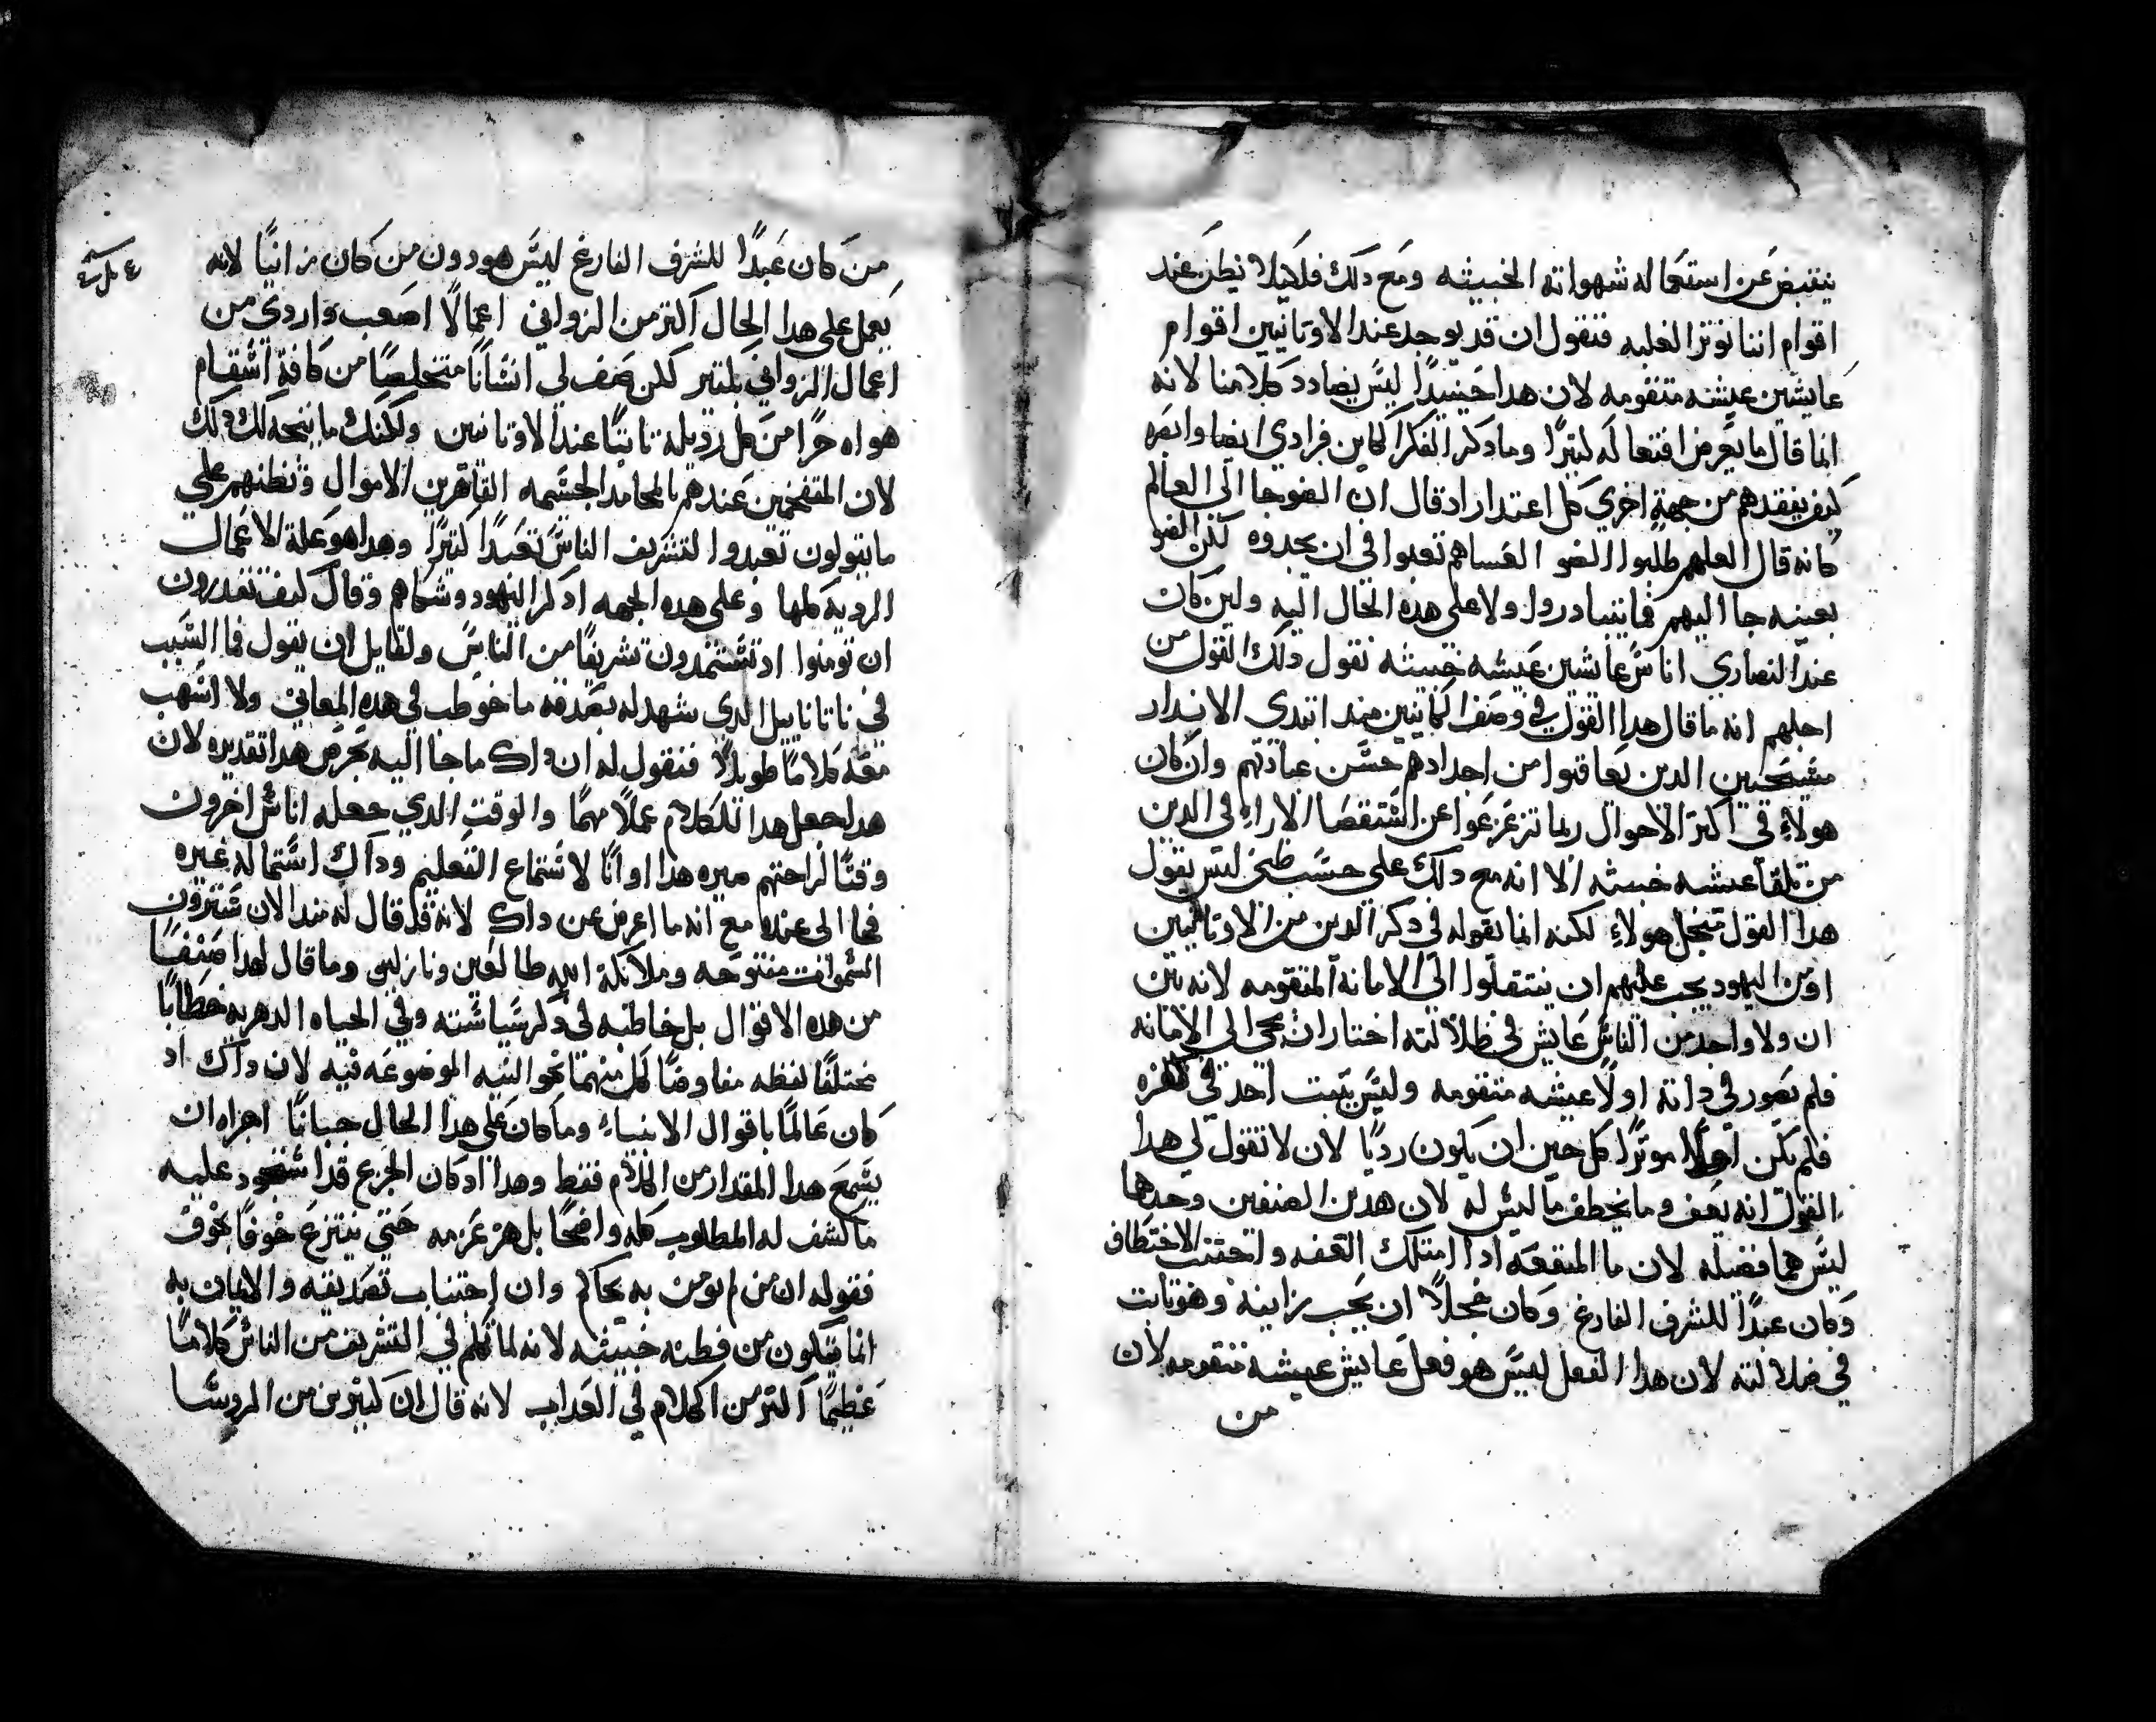 ينقبض عن استعماله شهواته الخبيثه ومع دلك فلكيلا نظن عند
اقوام اننا نوثر الغلبه فنقول ان قد يوجد عند الاوثانيين اقوام
عايشين عيشه متقومه لان هدا حينيدًا ليس يضادد كلامنا لانه
انما قال ما يعرض افتعاله كثيرًا وما دكر الفكر الكاين فرادي ايضا وابصر
كيف يفقدهم من جهة اخري كل اعتدار اد قال ان الضو جا الى العالم
كانه قال العلهم طلبوا الضو العساهم تعبوا في ان يجدوه لكن الضو
بعينه جا اليهم فما يتبادروا ولا على هده الحال اليه ولين كان
عند النصاري اناس عايشين عيشه خبيثه نقول دلك القول من
اجلهم انه ما قال هدا القول في وصف الكاينين مند ابتدي الاندار
مسيحيين الدين تعاقبوا من اجدادهم حسن عبادتهم وان كان
هولاءِ في اكثر الاحوال ربما تزعزعوا عن استقصا الاراءِ في الدين
من تلقا عيشه خبيثه الا انه مع دلك على حسب ظني ليس يقول
هدا القول من اجل هولاءِ لكنه انما يقوله في دكر الدين من الاوثانيين
او من اليهود يجب عليهم ان ينتقلوا الى الامانه المتقومه لانه بين
ان ولا واحد من الناس عايش في ظلالته اختار ان يجي الى الامانه
فلم يصور في داته اولًا عيشه متقومه وليس يثبت احد في كفره
فلم يكن اولًا موثرًا كل حين ان يكون رديًا لان لا تقول لي هدا
القول انه يعف وما يخطف ما ليس له لان هدين الصنفين وحدها
ليس هما فضيله لان ما المنفعه ادا امتلك العفه واتحفت الاختطاف
وكان عبدًا للشرف الفارغ وكان خجلًا ان يحب زانيه وهو ثابت
في ضلالته لان هدا الفعل ليس هو فعل عايش عيشه متقومه لان
من
من كان عبدًا للشرف الفارغ ليس هو دون من كان زانيًا لانه
يعمل على هدا الحال اكثر من الزواني اعمالًا اصعب واردي من
اعمال الزواني بكتير لكن صف لي انسانًا متخلصًا من كافة اسقام
هواه حرًا من كل رديلة ثابتًا عند الاوثانيين ولكنك ما يتجه لك دلك
لان المتفخمين عندهم بالمحامد الجسمه القاهرين الاموال وتظنهم على
ما يتولون تعبدوا لتشريف الناس تعبدًا كثيرًا وهدا هو علة الاعمال
الرديه كلها وعلى هده الجهه ادكر اليهود وشكاهم وقال كيف تقدرون
ان تومنوا اد تستمدون تشريفًا من الناس ولقايل ان يقول فما السبب
في ناتاناييل الدي شهد له بصدقه ما خوطب في هده المعاني ولا اسهب
معه كلامًا طويلًا فنقول له ان داك ما جا اليه بحرص هدا تقديره لان
هدا جعل هدا الكلام عملًا مهمًا والوقت الدي جعله اناس اخرون
وقتًا لراحتهم صيره هدا اوانًا لاستماع التعليم وداك استماله غيره
فجا الى عنده مع انه ما اعرض عن داك لانه قد قال له مند الان سترون
السموات مفتوحه وملايكة الله طالعين ونازلين وما قال لهدا صنفًا
من هده الاقوال بل خاطبه في دكر سياسته وفي الحياه الدهريه خطابًا
مختلفًا لفظه مفاوضًا كل منهما نحو النيه الموضوعه فيه لان داك اد
كان عالمًا باقوال الانبياءِ وما كان على هدا الحال جبانًا اجزاه ان
يسمع هدا المقدار من الكلام فقط وهدا اد كان الجزع قد استحود عليه
ما كشف له المطلوب كله واضحًا بل هز عزمه حتى ينتزع خوفًا بخوف
فقوله ان من لم يومن به يحاكم وان اجتناب تصديقه والايمان به
انما يتكون من فطنه خبيثه لانه لما تكلم في التشريف من الناس كلامًا
عظيمًا اكثر من الكلام في العداب لانه قال ان كثيرين من الروسا